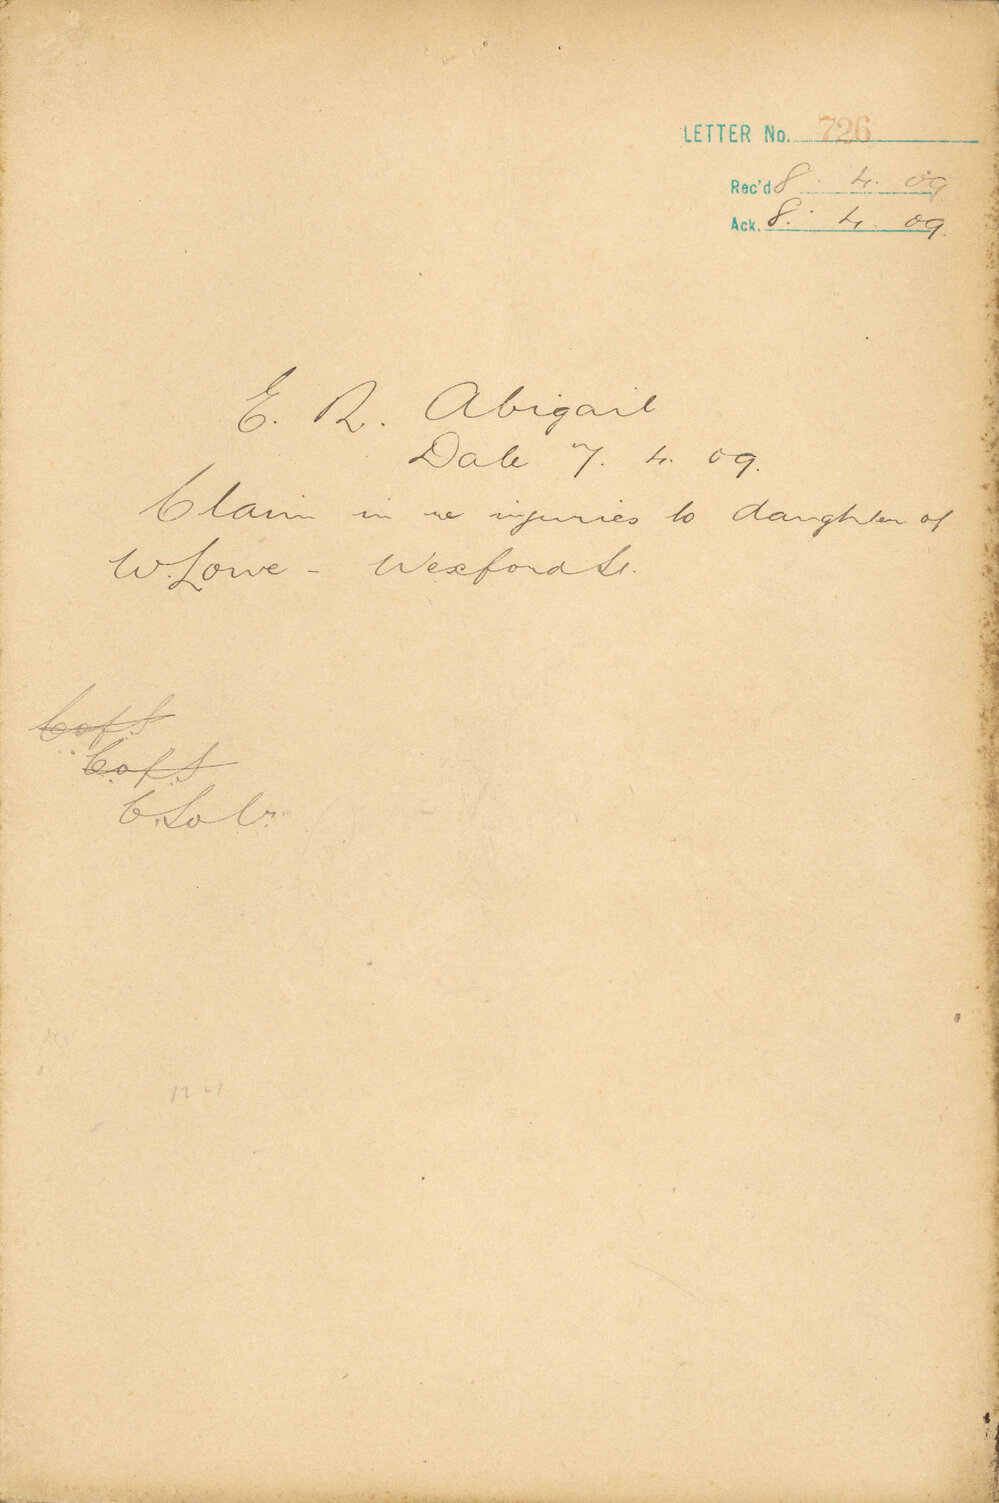 LETTER No. 726
Rec'd 8. 4. 09
Ack. 8. 4. 09.
E. R. Abigail
Date 7. 4. 09.
Claim in re injuries to daughter of
W. Lowe - Wexford St.
C of S
C of S
C. Solr.